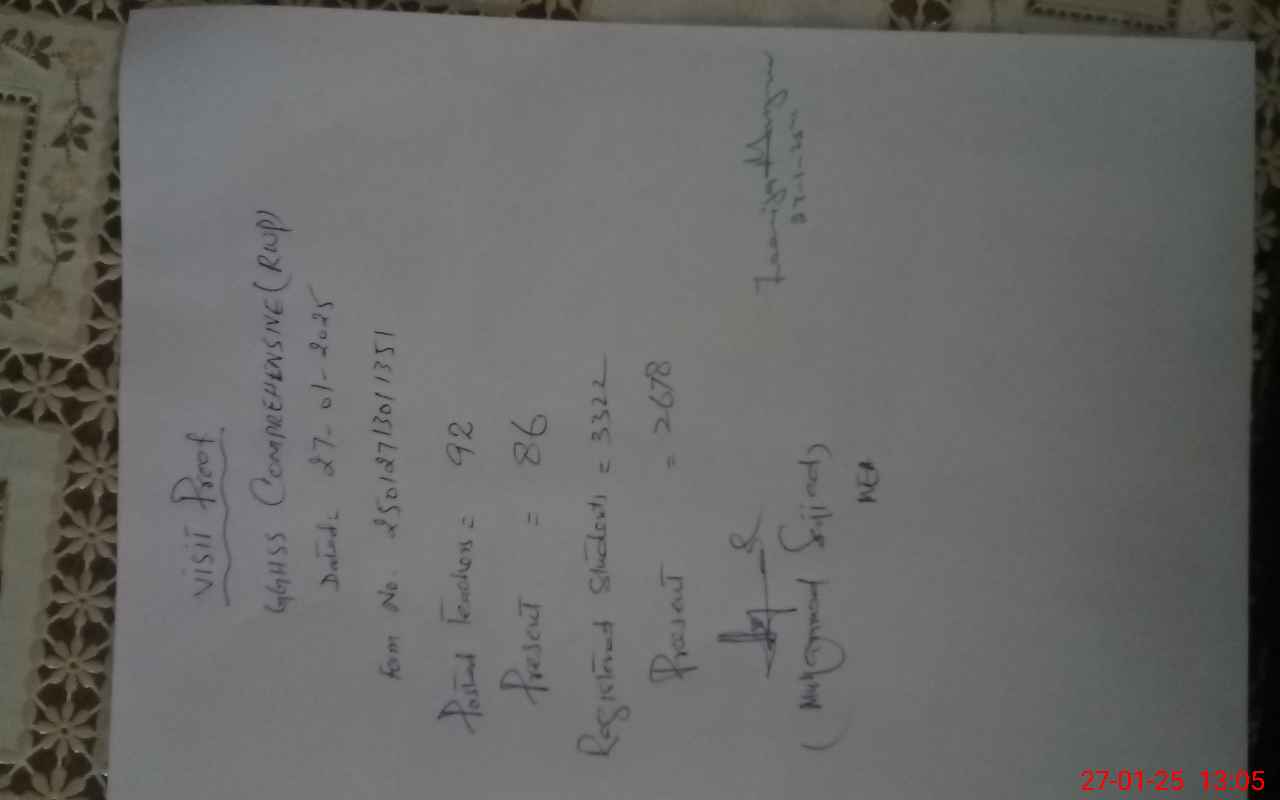 VISIT Proof
GGHSS COMPREHENSIVE (RWP)
Dated. 27-01-2025
form No. 25012713011351
Posted Teachers = 92
Present = 86
Registered Students = 3322
Present = 2678
(Muhammad Sajjad)
MEA
27-1-25
27-01-25 13:05